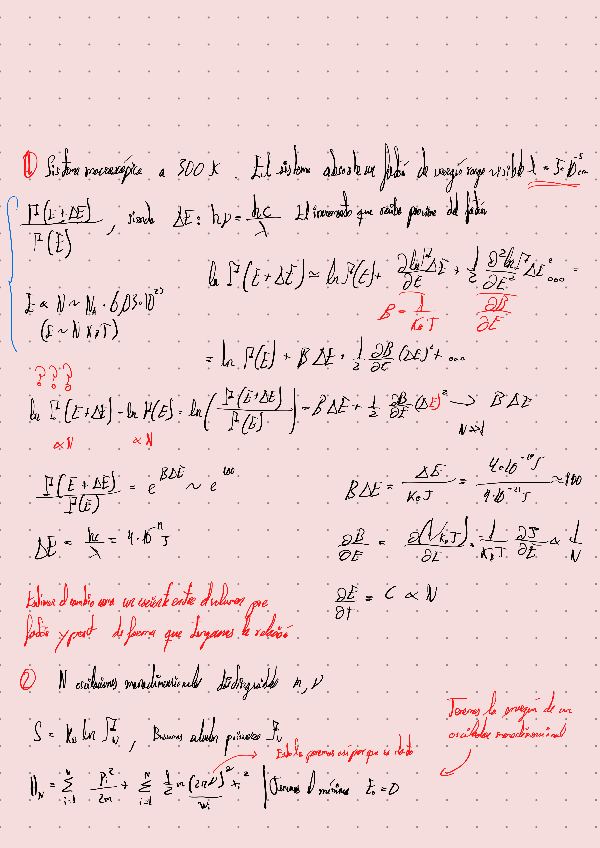 ① Sistema macroscópico a 300 K. El sistema absorbe un fotón de energía rango visible λ = 5·10⁻⁵ cm
Γ(E+ΔE) / Γ(E), siendo ΔE: hν = hc/λ El incremento que recibe proviene del fotón
ln Γ(E+ΔE) ≃ ln Γ(E) + ∂lnΓ/∂E ΔE + 1/2 ∂²lnΓ/∂E² ΔE² ... =
β = 1/K_B T ∂β/∂E
E ∝ N ~ N_A · 6,03·10²³
(E ~ N K_B T)
= ln Γ(E) + β ΔE + 1/2 ∂β/∂E (ΔE)² + ...
? ? ?
ln Γ(E+ΔE) - ln Γ(E) = ln(Γ(E+ΔE)/Γ(E)) = β ΔE + 1/2 ∂β/∂E (ΔE)² → β ΔE
∝ N ∝ N N≫1
Γ(E+ΔE)/Γ(E) = e^{βΔE} ~ e^{100}
β ΔE = ΔE/K_B T = 4·10⁻¹⁹ J / 4·10⁻²¹ J ≈ 100
ΔE = hc/λ = 4·10⁻¹⁹ J
∂β/∂E = ∂(1/K_B T)/∂E = 1/K_B T ∂T/∂E ∝ 1/N
∂E/∂T = C ∝ N
Estimar el cambio como un cociente entre el volumen pre
fotón y post de forma que tengamos la relación
② N osciladores monodimensionales distinguibles m, ν
Tenemos la energía de un
oscilador monodimensional
S = K_B ln Γ, Buscamos calcular primero Γ
Esto lo ponemos así porque es dato
H_N = Σ_{i=1}^{N} P_i²/2m + Σ_{i=1}^{N} 1/2 m (2πν)² x_i² | Tenemos el mínimo E_0 = 0
w_i